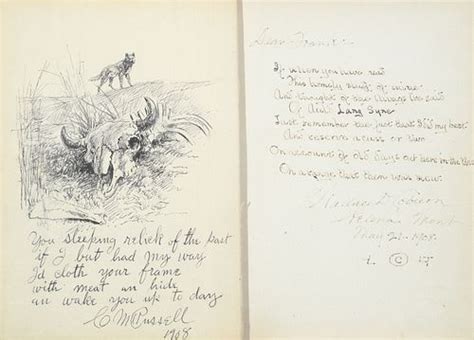 You sleeping relick of the past
if I but had my way
Id cloth your frame
with meat an hide
an wake you up to day
C M Russell
1908
Dear Frank:
If when you have read
This homely stuff of mine
And thought of
Of Auld Lang Syne
Just remember
And reserve a cuss or two
On account of Old days out here in the
On a range that then was new.
Helena Mont
May 21-1908.